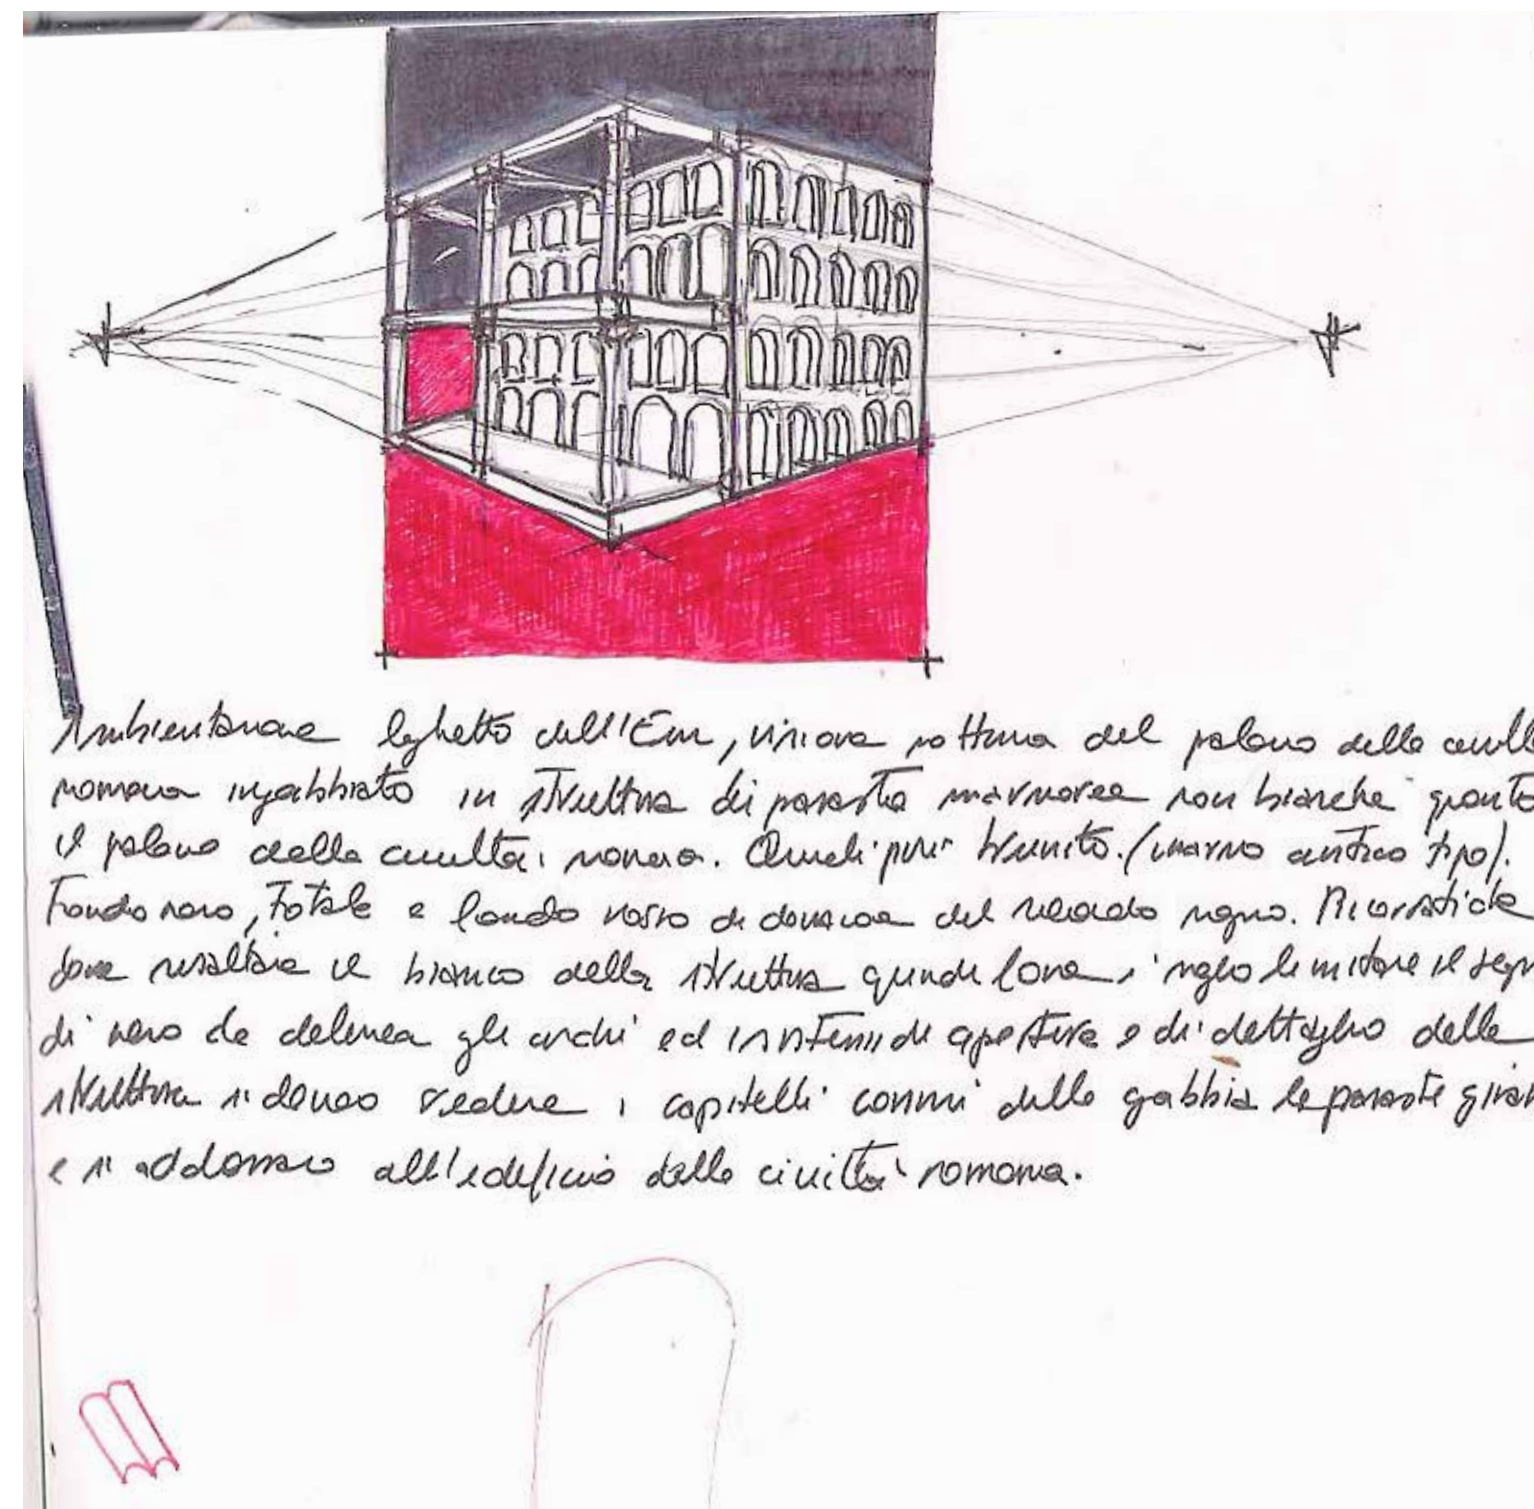 Ambientazione laghetto dell'Eur, visione notturna del palazzo della
romana ingabbiato in struttura di parasta marmorea non bianche quanto
il palazzo della civiltà romana. Quindi più brunito. (marmo antico tipo).
Fondo nero, Totale e fondo rosso di del secondo segno.
deve risaltare il bianco della struttura quindi forse è meglio limitare il
di nero che delinea gli archi ed i sistemi di apertura e di dettaglio della
struttura si devono vedere i capitelli cornici della gabbia le paraste
e si addossano all'edificio della civiltà romana.